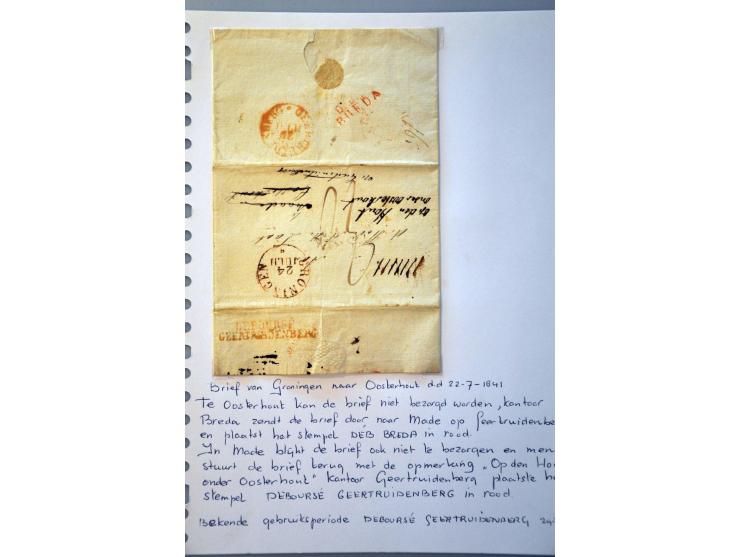 DEB
BREDA
op den Hout
onder Oosterhout
GRONINGEN
24
JULIJ
DEBOURSÉ
GEERTRUIDENBERG
Brief van Groningen naar Oosterhout d.d 22-7-1841.
Te Oosterhout kan de brief niet bezorgd worden, kantoor
Breda zendt de brief door naar Made op Geertruidenbe
en plaatst het stempel DEB BREDA in rood.
In Made blijkt de brief ook niet te bezorgen en men
stuurt de brief terug met de opmerking "Op den Ho
onder Oosterhout" kantoor Geertruidenberg plaatste he
stempel DEBOURSÉ GEERTRUIDENBERG in rood.
Bekende gebruiksperiode DEBOURSÉ GEERTRUIDENBERG